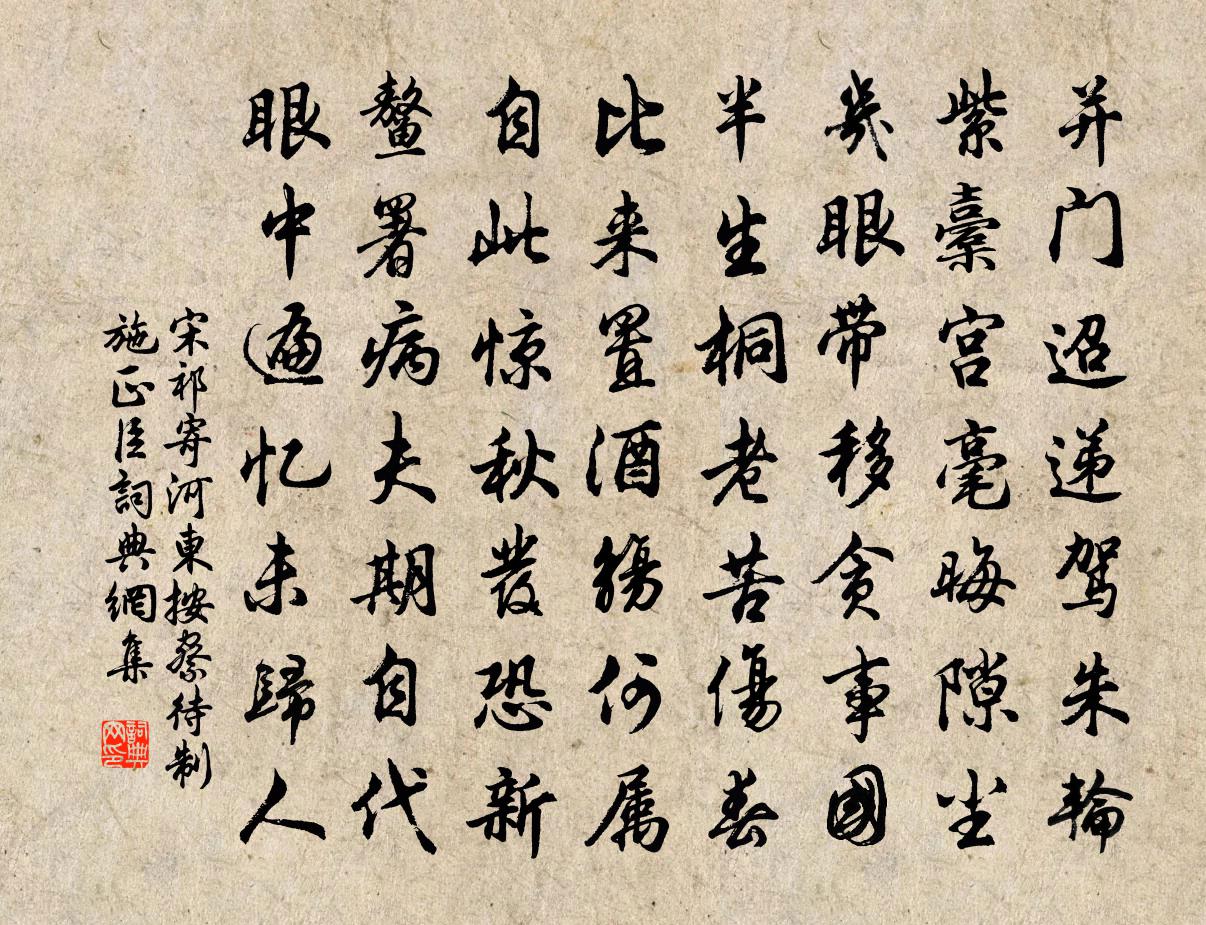 并门迢递驾朱轮
紫橐宫毫晦隙尘
几眼带移贪事國
半生桐老苦傷春
比来置酒觞何属
自此惊秋发恐新
鳌署病夫期自代
眼中遍忆未歸人
宋祁寄河東按察待制
施正臣詞典網集
詞典網印